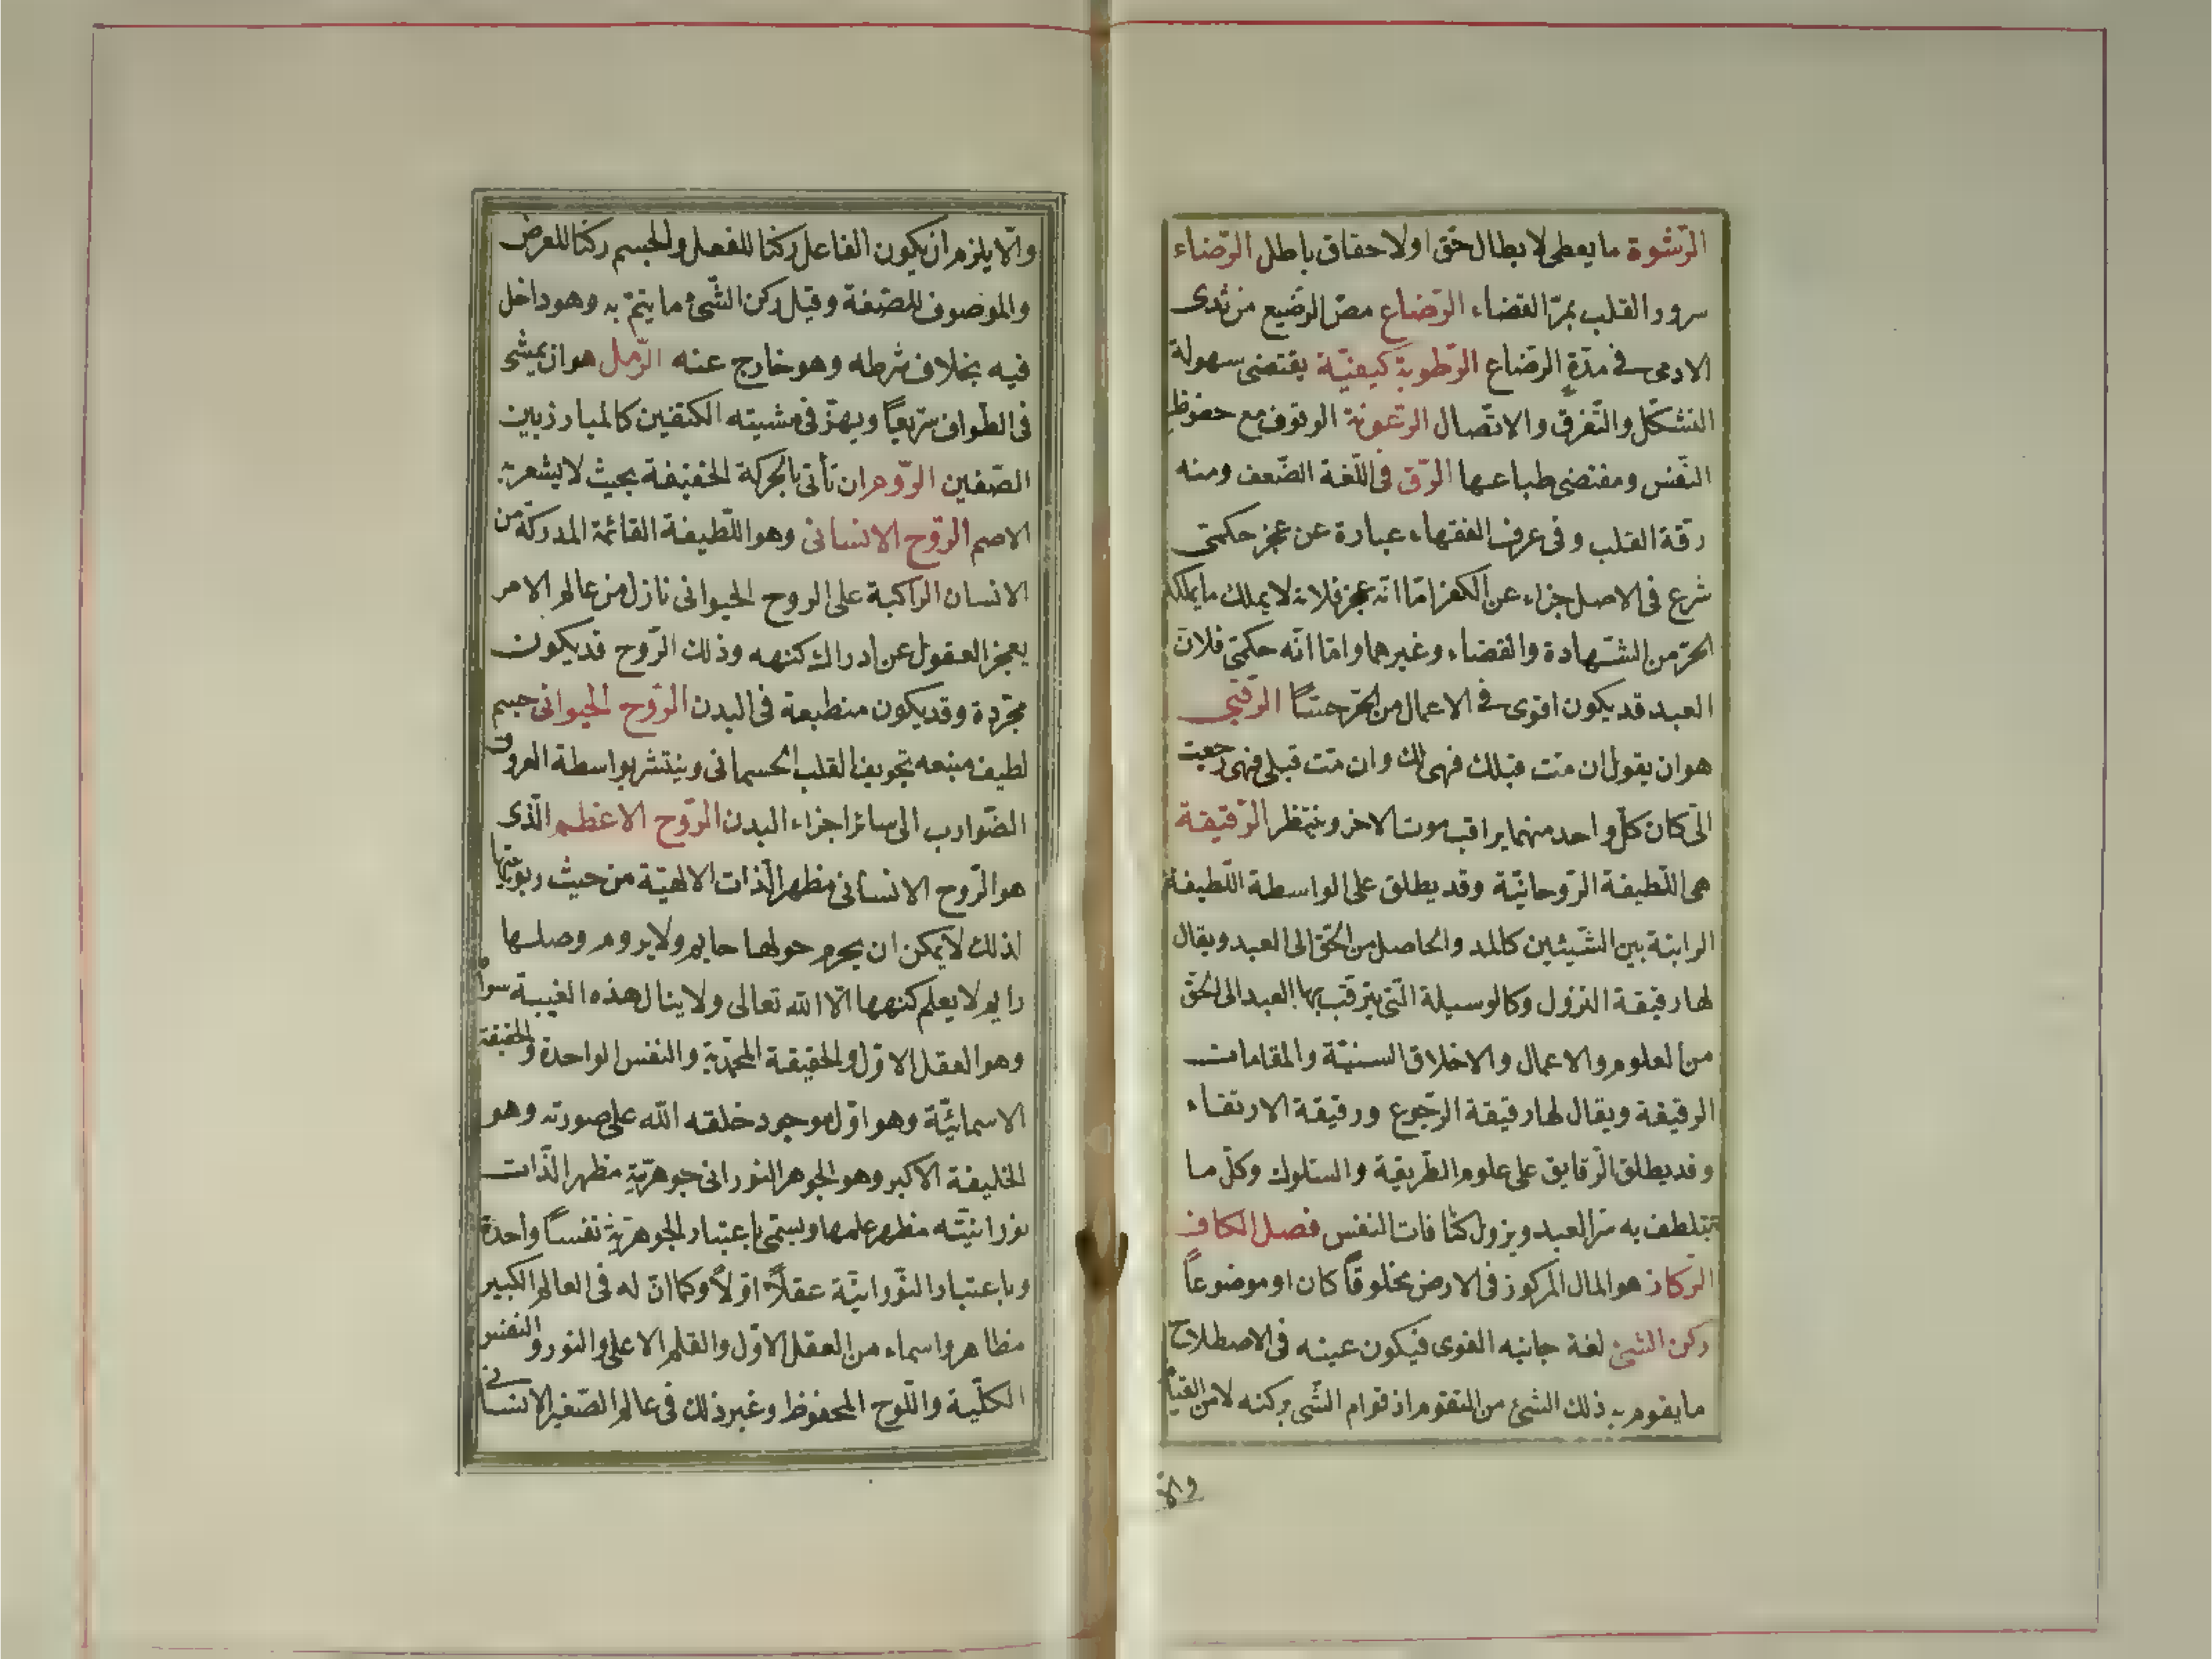 الرّشوة ما يعطى لابطال حقّ او لاحقاق باطل الرّضاء
سرور القلب بمرّ القضاء الرّضاع مصّ الرضيع من ثدى
الادمى فى مدّة الرضاع الرّطوبة كيفيّة يقتضى سهولة
التشكّل والتّفرق والاتّصال الرّعونة الوقوف مع حضوظ
النّفس ومقتضى طباعها الرّق فى اللّغة الضّعف ومنه
رقّة القلب وفى عرف الفقهاء عبارة عن عجز حكمّى
شرع فى الاصل جزاء عن الكفر امّا انّه عجز فلانه لا يملك ما يملكه
الحرّ من الشّهادة والقضاء وغيرهما وامّا انّه حكمّى فلانّ
العبد قد يكون اقوى فى الاعمال من الحرّ حسّاً الرّقبى
هو ان يقول ان متّ قبلك فهى لك وان متّ قبلى فهى رجعت
الىّ كان كلّ واحد منهما يراقب موت الاخر وينتظر الرّقيقة
هى اللّطيفة الرّوحانيّة وقد يطلق على الواسطة اللّطيفة
الرابتة بين الشّيئين كالمدد الحاصل من الحقّ الى العبد ويقال
لها رقيقة النزول وكالوسيلة الّتى يترقب بها العبد الى الحقّ
من العلوم والاعمال والاخلاق السنيّة والمقامات
الرقيقة ويقال لها رقيقة الرّجوع ورقيقة الارتقاء
وقد يطلق الرّقايق على علوم الطّريقة والسّلوك وكلّ ما
يتلطف به سرّ العبد ويزول كثافات النفس فصل الكاف
الرّكاز هو المال المركوز فى الارض مخلوقاً كان او موضوعاً
ركن الشئ لغة جانبه القوى فيكون عينه فى الاصطلاح
ما يقوم به ذلك الشئ من التقوم اذ قوام الشّى بركنه لا من القيام
والّا
والّا يلزم ان يكون الفاعل ركنا للفعل والجسم ركنا للعرض
والموصوف للصّفة وقيل ركن الشّئ ما يتمّ به وهو داخل
فيه بخلاف شرطه وهو خارج عنه الرّمل هو ان يمشى
فى الطّواف سريعاً ويهزّ فى مشيته الكتفين كالمبارز بين
الصّفين الرّوم ان تأتى بالحركة الخفيفة بحيث لا يشعر به
الاصم الرّوح الانسانى وهو اللّطيفة القائمة المدركة من
الانسان الراكبة على الروح الحيوانى نازل من عالم الامر
يعجز العقول عن ادراك كنهه وذلك الرّوح قد يكون
مجرّدة وقد يكون منطبعة فى البدن الرّوح الحيوانى جسم
لطيف منبعه تجويف القلب الجسمانى وينتشر بواسطة العروق
الضّوارب الى سائر اجزاء البدن الرّوح الاعظم الّذى
هو الرّوح الانسانى مظهر الذّات الالهيّة من حيث ربوبيّتها
لذلك لا يمكن ان يحوم حولها حايم ولا يروم وصلها
رايم لا يعلم كنهها الّا الله تعالى ولا ينال هذه الغيبة سواه
وهو العقل الاوّل والحقيقة المحمّديّة والنفس الواحدة والحقيقة
الاسمائيّة وهو اوّل موجود خلقه الله على صورته وهو
الخليفة الاكبر وهو الجوهر النورانى جوهريّته مظهر الذّات
نورانيّته مظهر علمها ويسمّى باعتبار الجوهريّة نفساً واحدة
وباعتبار النّورانيّة عقلاً اوّلاً وكما انّ له فى العالم الكبير
مظاهر واسماء من العقل الاوّل والقلم الاعلى والنور والنفس
الكلّية واللّوح المحفوظ وغير ذلك فى عالم الصّغير الانسانى